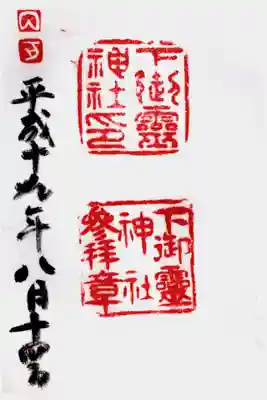 下御靈
神社印
下御靈
神社
參拜章
平成十九年八月十四日